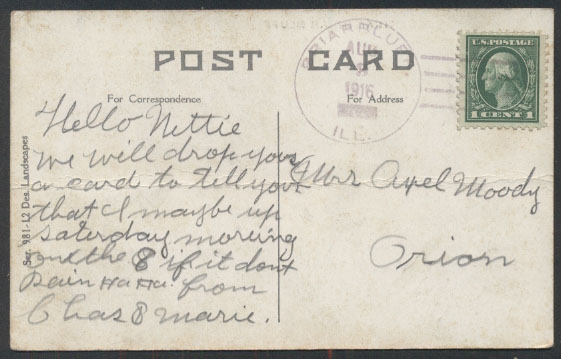 POST CARD
BRIARBLUFF
AUG
1916
ILL.
U.S. POSTAGE
1 CENT 1
For Correspondence
For Address
Ser. 981-12 Des. Landscapes
Hello Nettie
we will drop your
a card to tell your
that I maybe up
saturday morning
on the 8 if it dont
Rain Ha Ha. from
Chas & Marie.
Mrs Axel Moody
Orion